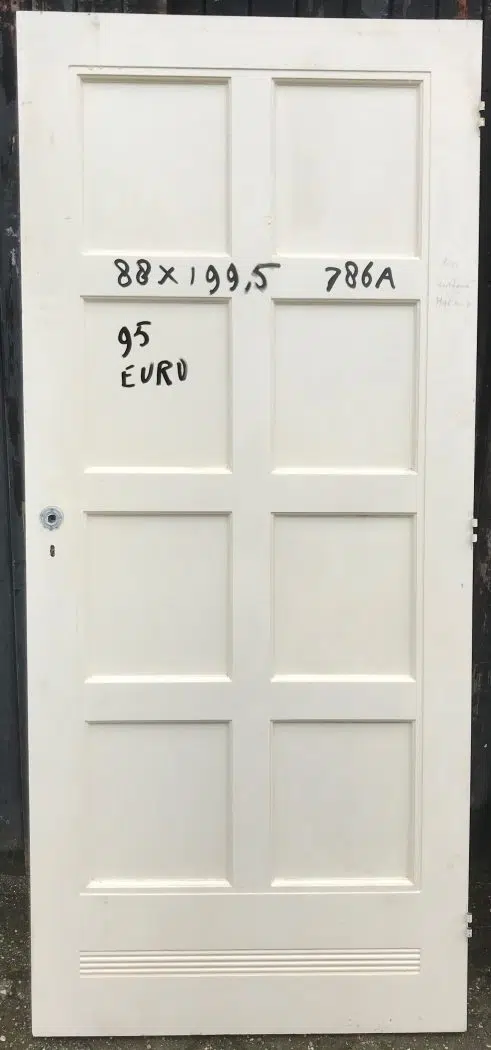 88 x 199,5 786A
95
EURO